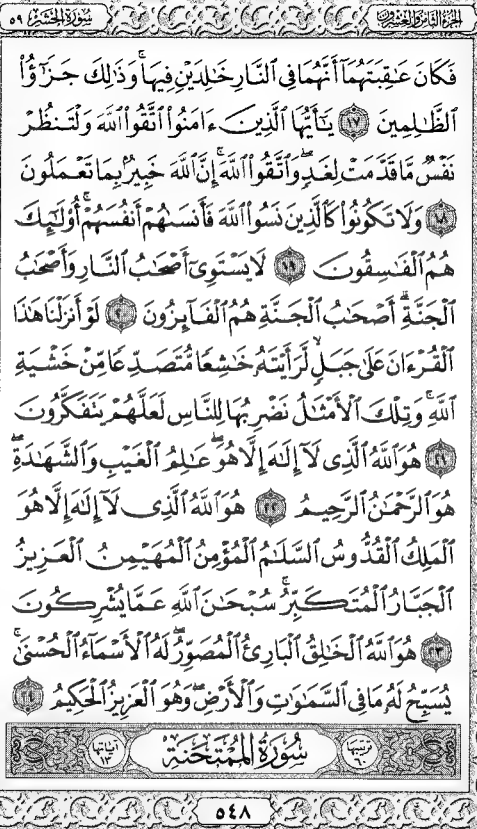 الجزء الثامن والعشرون سورة الحشر ٥٩
فَكَانَ عَٰقِبَتَهُمَآ أَنَّهُمَا فِى ٱلنَّارِ خَٰلِدَيْنِ فِيهَا ۚ وَذَٰلِكَ جَزَٰٓؤُا۟
ٱلظَّٰلِمِينَ ١٧ يَٰٓأَيُّهَا ٱلَّذِينَ ءَامَنُوا۟ ٱتَّقُوا۟ ٱللَّهَ وَلْتَنظُرْ
نَفْسٌ مَّا قَدَّمَتْ لِغَدٍ ۖ وَٱتَّقُوا۟ ٱللَّهَ ۚ إِنَّ ٱللَّهَ خَبِيرٌۢ بِمَا تَعْمَلُونَ
١٨ وَلَا تَكُونُوا۟ كَٱلَّذِينَ نَسُوا۟ ٱللَّهَ فَأَنسَىٰهُمْ أَنفُسَهُمْ ۚ أُو۟لَٰٓئِكَ
هُمُ ٱلْفَٰسِقُونَ ١٩ لَا يَسْتَوِىٓ أَصْحَٰبُ ٱلنَّارِ وَأَصْحَٰبُ
ٱلْجَنَّةِ ۚ أَصْحَٰبُ ٱلْجَنَّةِ هُمُ ٱلْفَآئِزُونَ ٢٠ لَوْ أَنزَلْنَا هَٰذَا
ٱلْقُرْءَانَ عَلَىٰ جَبَلٍ لَّرَأَيْتَهُۥ خَٰشِعًا مُّتَصَدِّعًا مِّنْ خَشْيَةِ
ٱللَّهِ ۚ وَتِلْكَ ٱلْأَمْثَٰلُ نَضْرِبُهَا لِلنَّاسِ لَعَلَّهُمْ يَتَفَكَّرُونَ
٢١ هُوَ ٱللَّهُ ٱلَّذِى لَآ إِلَٰهَ إِلَّا هُوَ ۖ عَٰلِمُ ٱلْغَيْبِ وَٱلشَّهَٰدَةِ ۖ
هُوَ ٱلرَّحْمَٰنُ ٱلرَّحِيمُ ٢٢ هُوَ ٱللَّهُ ٱلَّذِى لَآ إِلَٰهَ إِلَّا هُوَ
ٱلْمَلِكُ ٱلْقُدُّوسُ ٱلسَّلَٰمُ ٱلْمُؤْمِنُ ٱلْمُهَيْمِنُ ٱلْعَزِيزُ
ٱلْجَبَّارُ ٱلْمُتَكَبِّرُ ۚ سُبْحَٰنَ ٱللَّهِ عَمَّا يُشْرِكُونَ
٢٣ هُوَ ٱللَّهُ ٱلْخَٰلِقُ ٱلْبَارِئُ ٱلْمُصَوِّرُ ۖ لَهُ ٱلْأَسْمَآءُ ٱلْحُسْنَىٰ ۚ
يُسَبِّحُ لَهُۥ مَا فِى ٱلسَّمَٰوَٰتِ وَٱلْأَرْضِ ۖ وَهُوَ ٱلْعَزِيزُ ٱلْحَكِيمُ ٢٤
ترتيبها ٦٠ سُورَةُ المُمْتَحنَة آياتها ١٣
٥٤٨